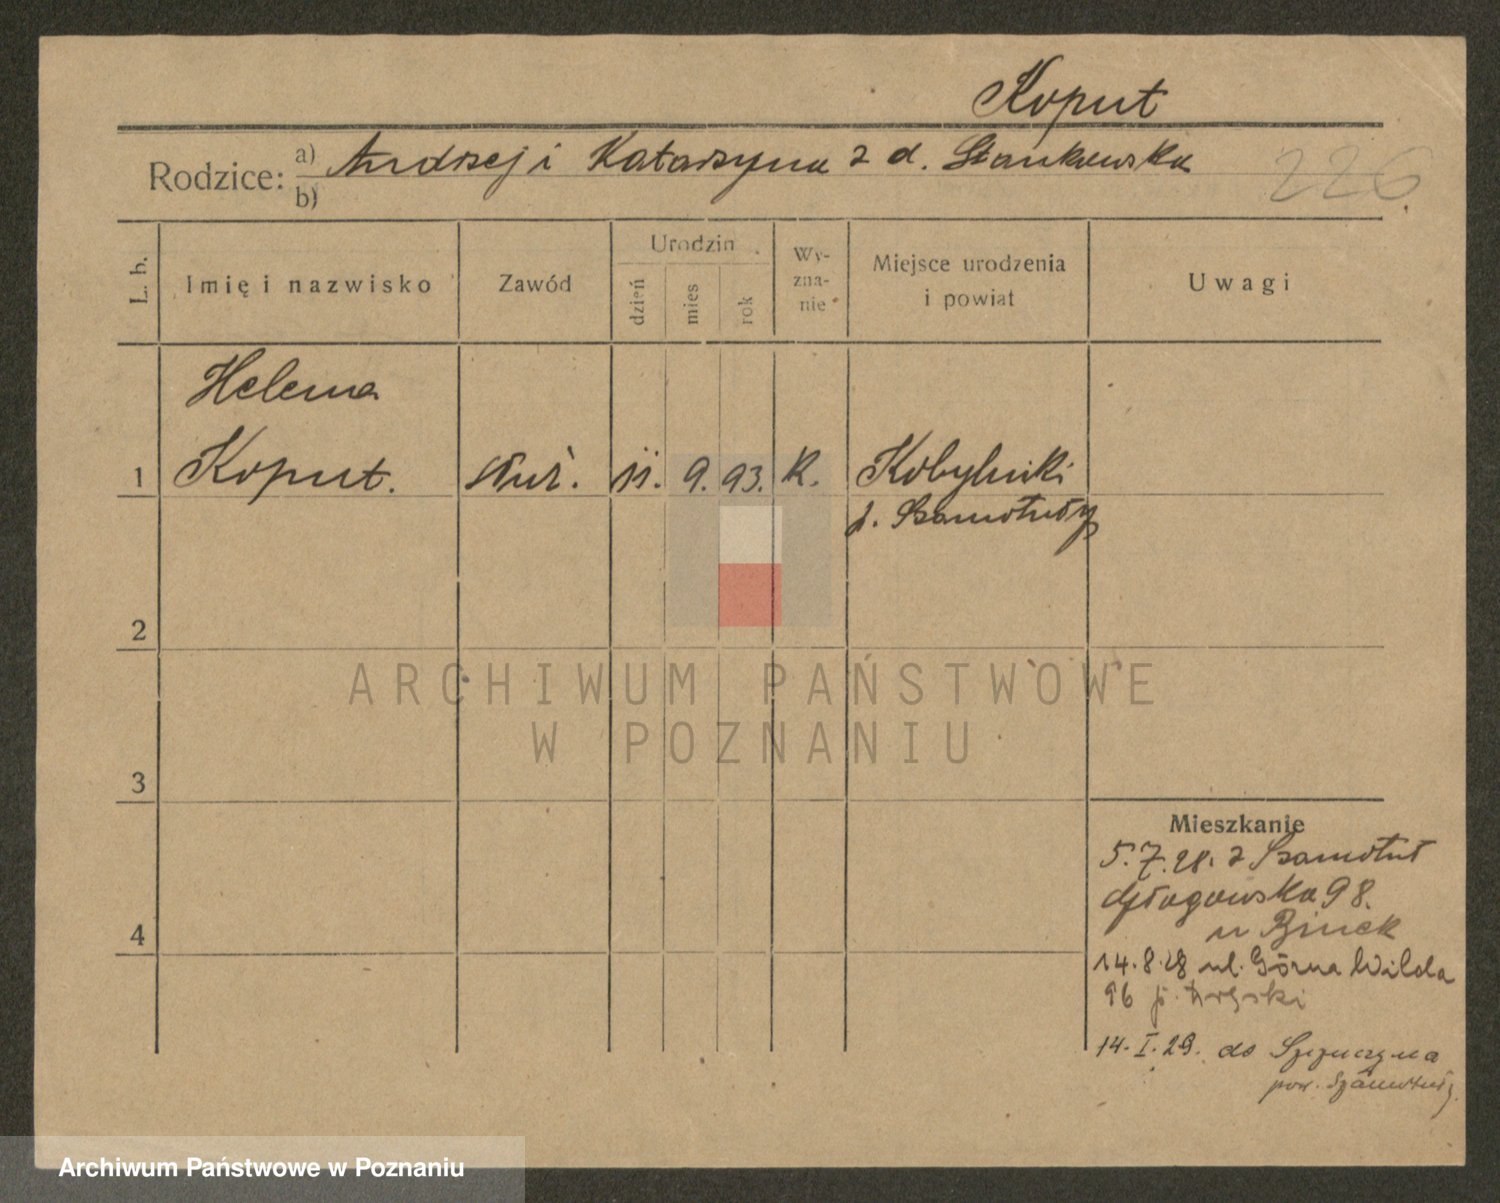 Koput
Rodzice: a) Andrzej i Katarzyna z d. Stankowska
b)
226
L. b.
Imię i nazwisko
Zawód
Urodzin
dzień
mies
rok
Wy-
zna-
nie
Miejsce urodzenia
i powiat
Uwagi
Helena
1 Koput. służ. 11. 9. 93. R. Kobylniki
p. Szamotuły
2
3
4
Mieszkanie
5.7.28. z Szamotuł
Głogowska 98.
u
14.8.28 ul. Górna Wilda
96 p.
14.I.29. do Szczuczyna
pow. Szamotuły.
ARCHIWUM PAŃSTWOWE
W POZNANIU
Archiwum Państwowe w Poznaniu